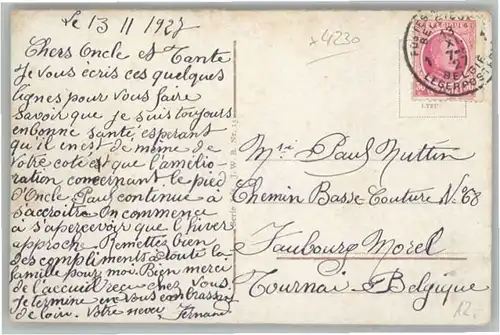 Le 13 11 1927
Chers Oncle et Tante
Je vous écris ces quelques
lignes pour vous faire
savoir que je suis toujours
en bonne santé, esperant
qu'il en est de même de
votre coté et que l'amélio-
ration concernant le pied
d'Oncle Paul continue à
s'accroitre On commence
à s'apercevoir que l'hiver
approche. Remettez bien
des compliments à toute la
famille pour moi. Bien merci
de l'accueil reçu chez vous.
Je termine en vous embrassant
de loin. Votre neveu Fernand
x4230
Mr Paul Nuttin
Chemin Basse Couture N°68
Faubourg Morel
Tournai - Belgique
12.-